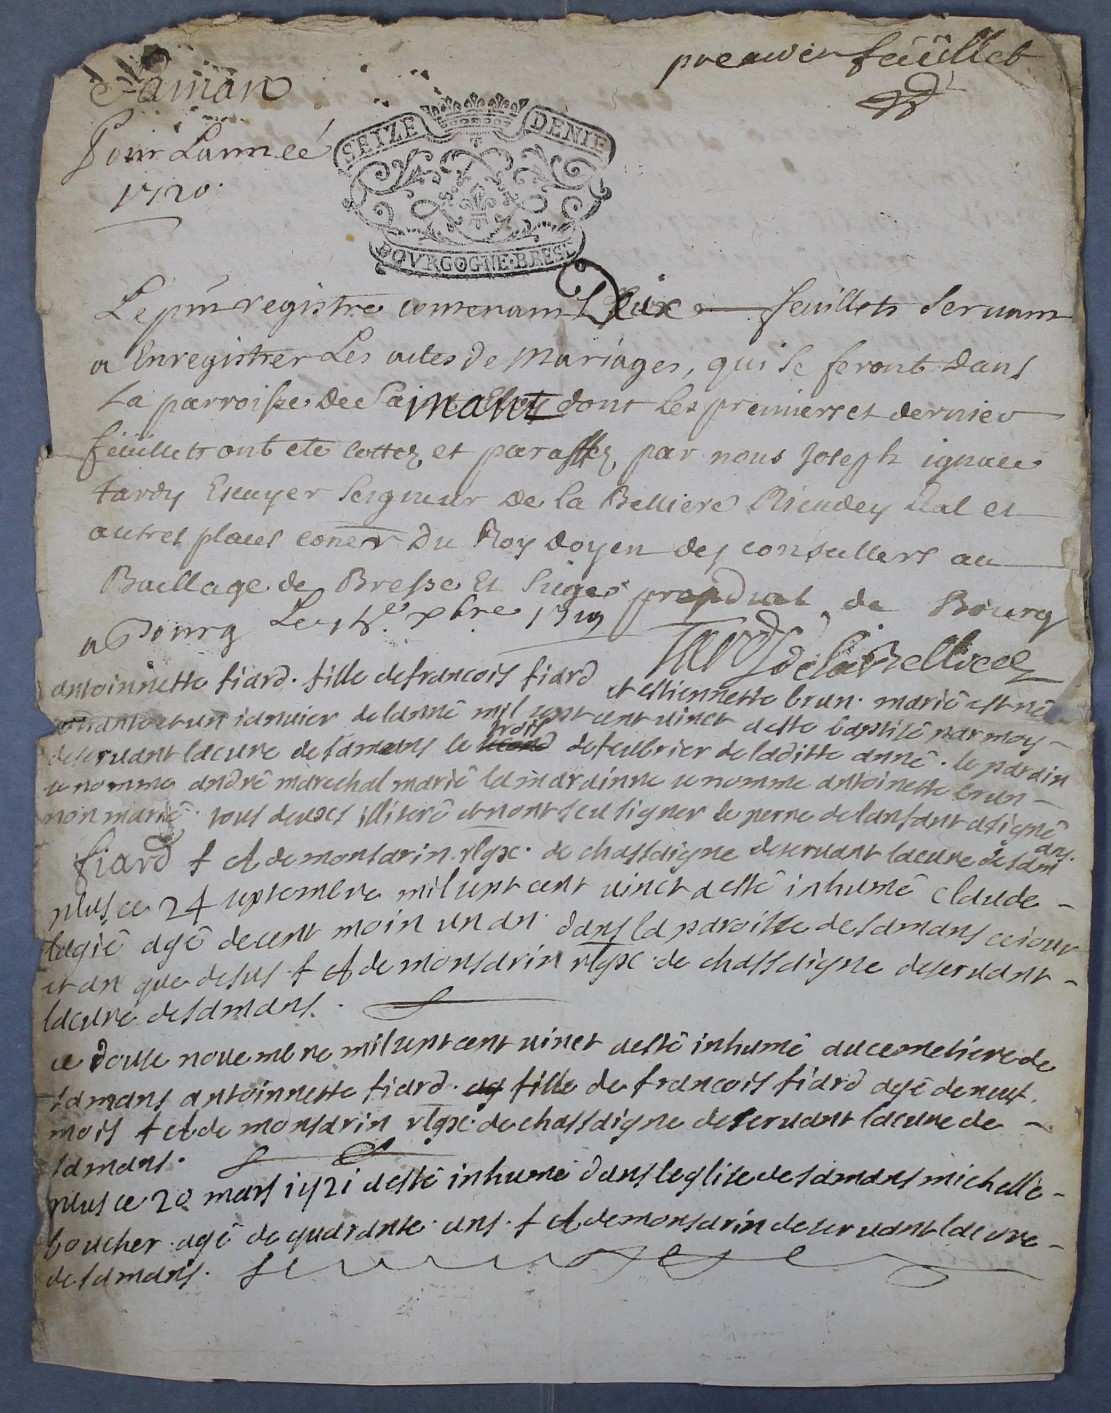 premier feüillet
Saman
Pour Lannéé
1720.
SEIZE DENIE
BOVRGOGNE·BRESSE
Le pnt registre contenant Deux feuillets servant
a Enregistrer Les actes de Mariages, qui se feront dans
La parroisse de Samans dont les premier et dernier
feüillet ont ete cottez et paraffez par nous Joseph ignace
tardy Escuyer Seigneur de la Belliere et
autres places coner Du Roy doyen des conseillers au
Baillage de Bresse Et Siege presidial de Bourg
a Bourg Le 18e xbre 1719 Tardy de la Belliere
antoinnette fiard. fille de francois fiard et estiennette brun. marié est né
trante et un ianvier de lanné mil sept cent vinct a esté baptisé par moy
deseruant lacure de samans le trois second de feubrier de laditte anné. le parain
se nomme andré marechal marié la marainne se nomme antoinette brun
non marié. tous deuxs illiteré et nont seu signer le perre de lansant a signé
fiard f A de monsarin rlgx. de chassaigne deseruant lacure de sam
ans.
plus ce 24 septembre mil sept cent vinct a esté inhumé claude
agé de cent moin un an. dans la paroisse de samans ce iour
et an que desus f A de monsarin rlgx. de chassaigne deseruant
lacure de samans.
ce douse nouembre mil sept cent vinct a esté inhumé au cemetiere de
samans antoinnette fiard. fille de francois fiard agé de neuf
mois f A de monsarin rlgx. de chassaigne deseruant lacure de
samans.
plus ce 20 mars 1721 a esté inhumé dans leglise de samans michelle
boucher agé de quarante ans. f A de monsarin deseruant lacure
de samans.